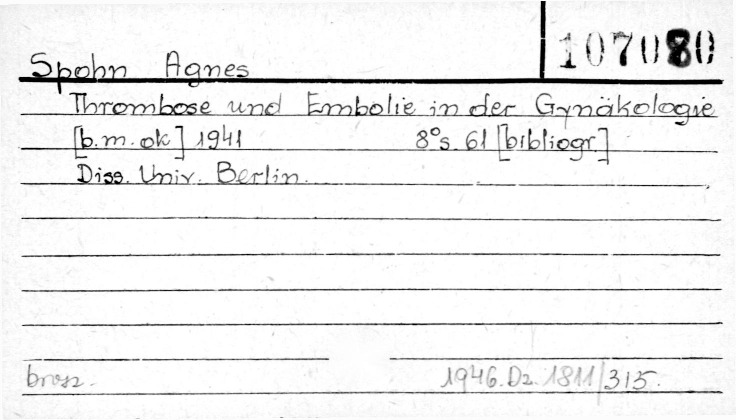 107080
Spohn Agnes
Thrombose und Embolie in der Gynäkologie
[b.m.ok] 1941 8°s. 61 [bibliogr.]
Diss. Univ. Berlin.
brosz. 1946.Dz.1811/315.